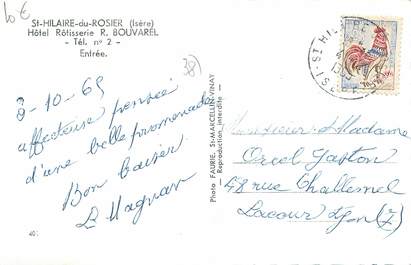 10 €
ST-HILAIRE-du-ROSIER (Isère)
Hôtel Rôtisserie R. BOUVAREL
- Tél. n° 2 -
Entrée.
38
3-10-65
affectueuse pensée
d'une belle promenade
Bon baiser
L Magnan
401
Photo FAURIE, St-MARCELLIN-VINAY
- Reproduction interdite -
ST HILAIRE
Monsieur & Madame
Orcel Gaston
48 rue Challemel
Lacour Lyon (7)